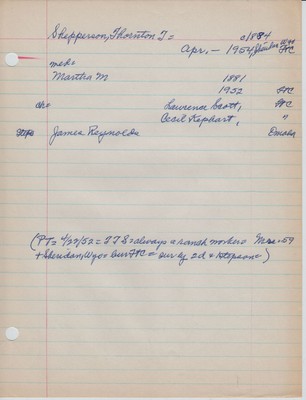 Shepperson, Thornton T = c/884
Apr, - 1954, Sheridan Wyo
FTC
md=
Martha M 1881
1952 FTC
ch= Lawrence Scott, FTC
Cecil Kephart, "
step= James Reynolds Omaha
(PT= 4/27/52 = TTS = always a ranch worker =
+ Sheridan, Wyo + bur FTC = surv by 2d + stepson = )